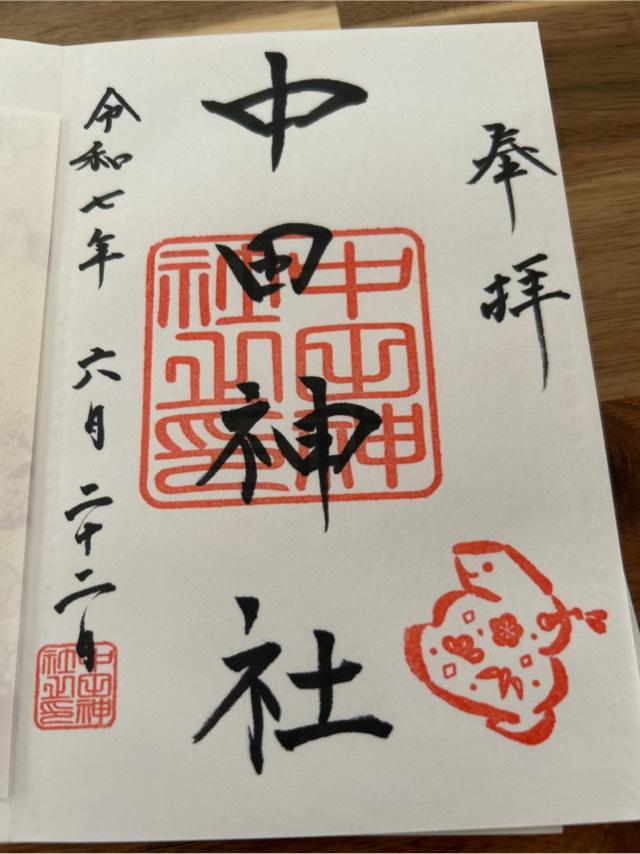 奉拝
中田神社
中田神社之印
令和七年 六月 二十二日
中田神社之印